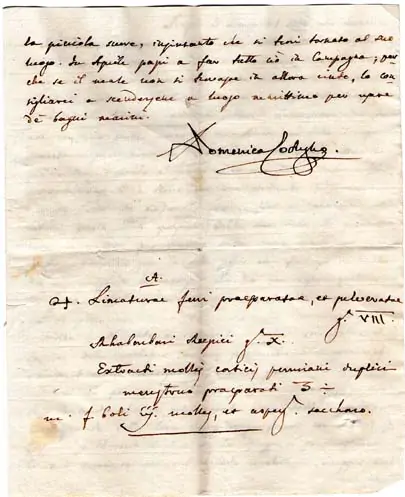 la piccola suora, insintanto che si terrà tornato al suo
luogo. In Aprile passi a far tutto ciò in Campagna;
che se il male non si trovasse in allora vinto, lo con
sigliarei a scendersene a luogo marittimo per usare
de bagni marini.
Domenico
A.
Limaturae ferri praeparatae, et pulveratae
g. VIII
Rhabarbari g. X.
Extracti mollis corticis peruviani duplici
menstruo praeparati
m. f. boli molles, et asperg. saccharo.